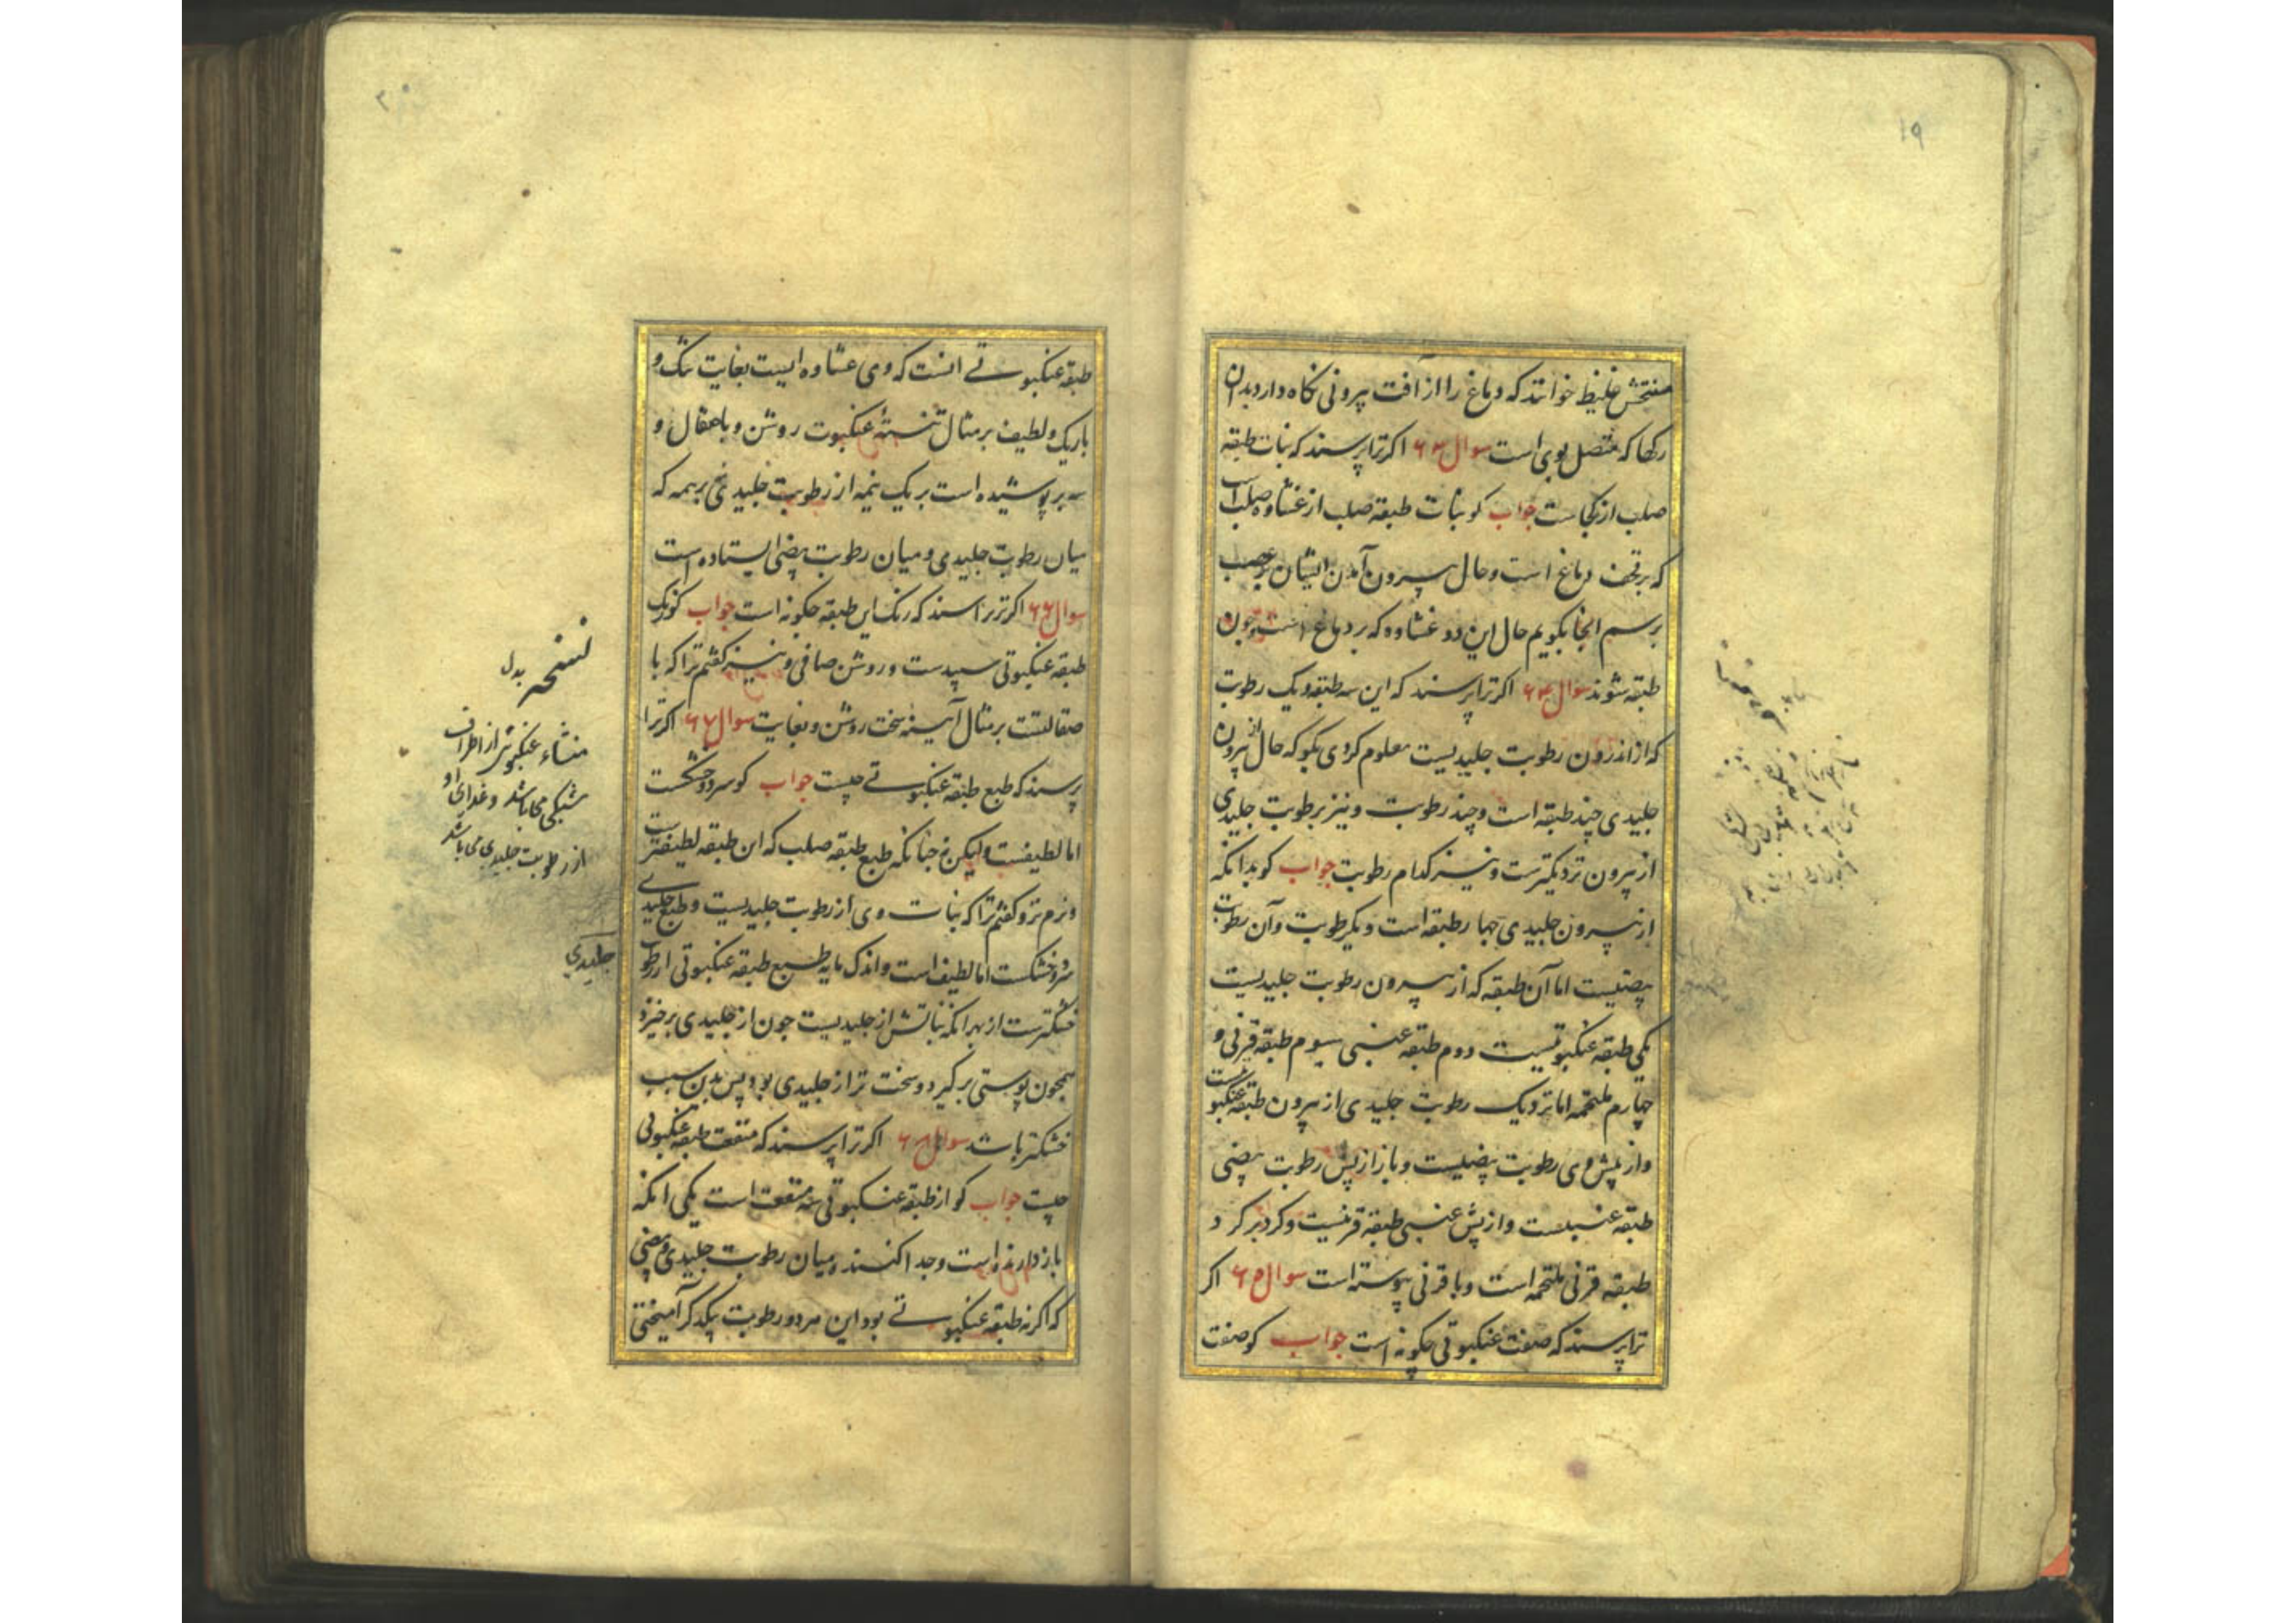 ۱۹
منفتحش غلیظ خوانند که دماغ را از آفت بیرونی نکاه دارد بدان
رکها که متصل بوی است سوال ۶۳ اکر ترا پرسند که نبات طبقه
صلب از کجاست جواب کو نبات طبقه صلب از غشاوه صلب است
که بر تحف دماغ است و حال بیرون آمدن ایشان بر عصب
برسم اینجا بکویم حال این دو غشاوه که بر دماغ است و چون
طبقه شوند سوال ۶۴ اکر ترا پرسند که این سه طبقه و یک رطوبت
که از اندرون رطوبت جلیدیست معلوم کردی بکو که حال از بیرون
جلیدی چند طبقه است و چند رطوبت و نیز برطوبت جلیدی
از بیرون نزدیکترست و نیز کدام رطوبت جواب کو بدانکه
از بیرون جلیدی چهار طبقه است و یکرطوبت و آن رطوبت
بیضیست اما آن طبقه که از بیرون رطوبت جلیدیست
یکی طبقه عنکبوتیست دوم طبقه عنبی سیوم طبقه قرنی و
چهارم ملتحمه اما نزدیک رطوبت جلیدی از بیرون طبقه عنکبوتیست
و از پیش وی رطوبت بیضیست و باز از پس رطوبت بیضی
طبقه عنبیست و از پش عنبی طبقه قرنیست و کرد بر کرد
طبقه قرنی ملتحمه است و با قرنی پیوسته است سوال ۶۵ اکر
ترا پرسند که صفت عنکبوتی چکونه است جواب کو صفت
۲۰
طبقه عنکبوتی انست که وی غشاوه ایست بغایت تنک و
باریک و لطیف بر مثال تنسته عنکبوت روشن و با صقال و
بر پوشیده است بر یک نیمه از رطوبت جلیدی نه بر همه که
میان رطوبت جلیدی و میان رطوبت بیضی ایستاده است
سوال ۶۶ اکر ترا پرسند که رنک این طبقه چکونه است جواب کو رنک
طبقه عنکبوتی سپیدست و روشن صافی و نیز کفتم ترا که با
صقالتست بر مثال آینه سخت روشن و بغایت سوال ۶۷ اکر ترا
پرسند که طبع طبقه عنکبوتی چیست جواب کو سرد و خشکست
اما لطیفست و لیکن نه چنانکه طبع طبقه صلب که این طبقه لطیفترست
و نرم تر و کفتم ترا که نبات وی از رطوبت جلیدیست و طبع جلیدی
سرد و خشکست اما لطیف است و اندک مایه طبع طبقه عنکبوتی از رطوبت
جلیدی
خشکترست از بهر انکه نباتش از جلیدیست چون از جلیدی بر خیزد
همچون پوستی بر کیرد و سخت تر از جلیدی بود پس بدین سبب
خشکتر باشد سوال ۶۸ اکر ترا پرسند که منفعت طبقه عنکبوتی
چیست جواب کو از طبقه عنکبوتی سه منفعت است یکی انکه
باز دارنده است و جدا کننده میان رطوبت جلیدی و بیضی
که اکر نه طبقه عنکبوتی بود این هر دو رطوبت بیکدکر آمیختی
نسخه بدل
منشاء عنکبوتی از اطراف
شبکی میباشد و غذای او
از رطوبت جلیدی می باشد